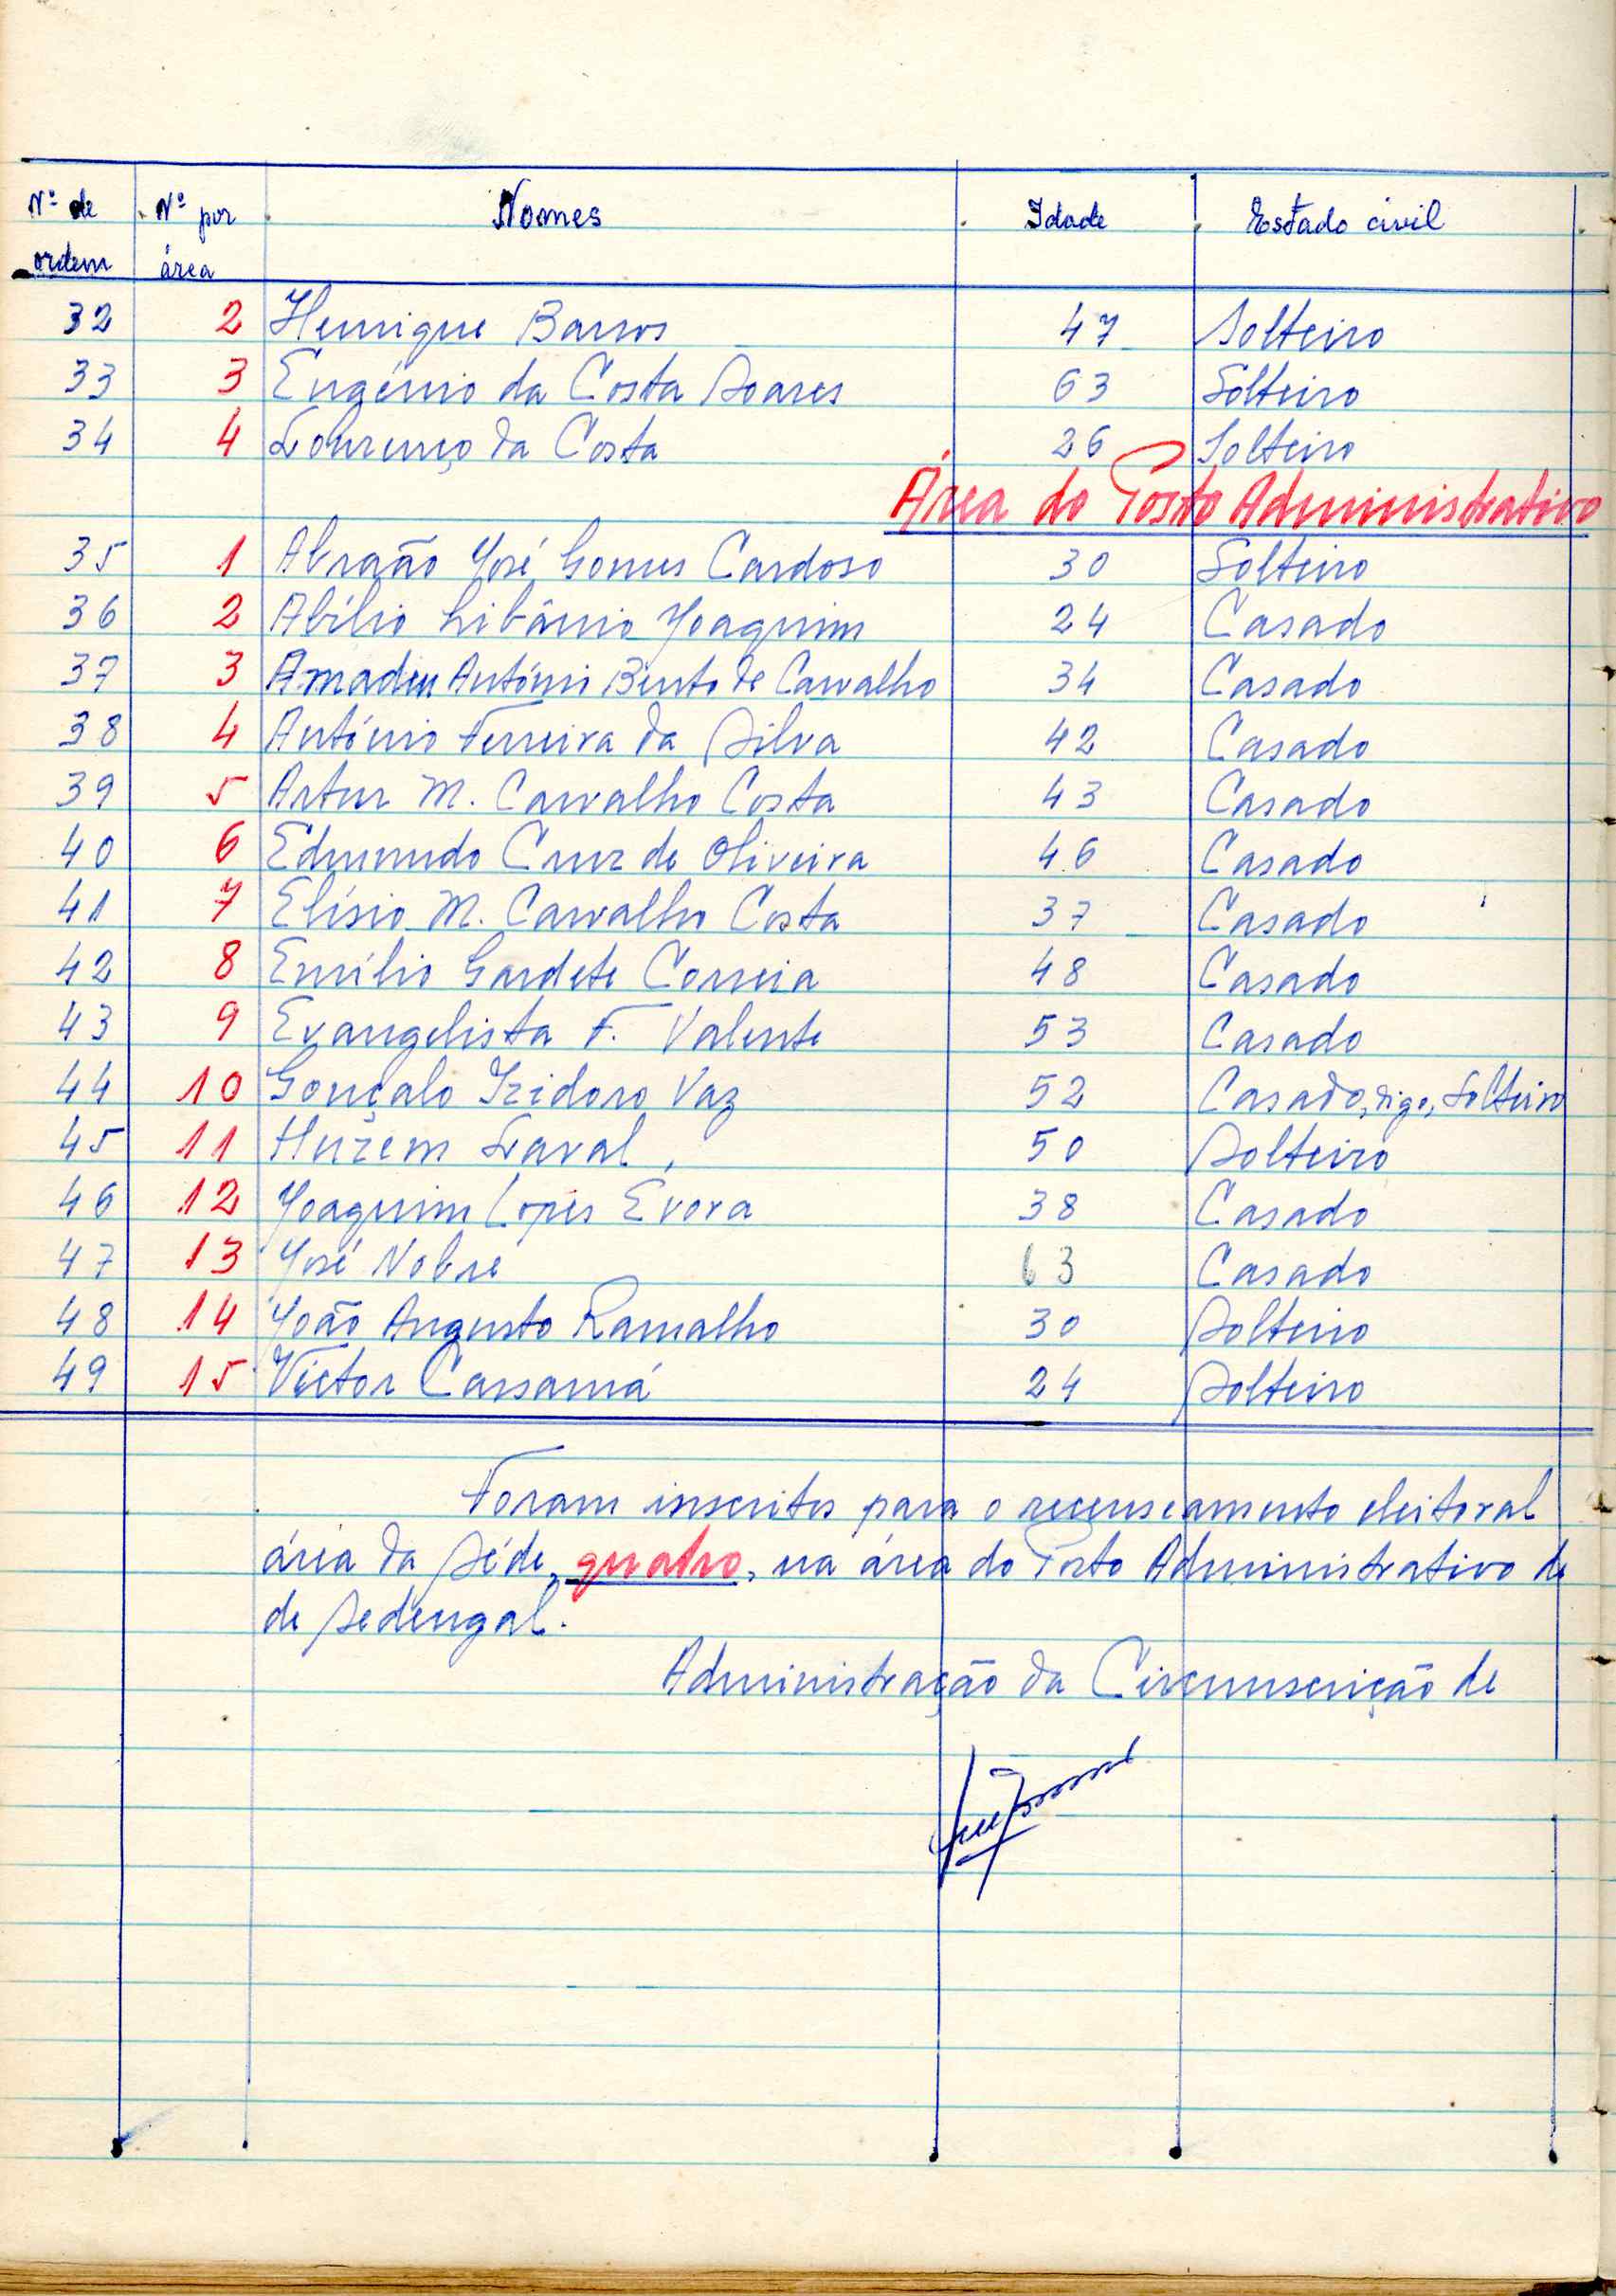 Nº de ordem Nº por área Nomes Idade Estado civil
32 2 Henrique Barros 47 Solteiro
33 3 Eugénio da Costa Soares 63 Solteiro
34 4 Lourenço da Costa 26 Solteiro
Área do Posto Administrativo
35 1 Abraão José Gomes Cardoso 30 Solteiro
36 2 Abílio Libânio Joaquim 24 Casado
37 3 Amadeu António Bento de Carvalho 34 Casado
38 4 António Ferreira da Silva 42 Casado
39 5 Artur M. Carvalho Costa 43 Casado
40 6 Edmundo Cruz de Oliveira 46 Casado
41 7 Elísio M. Carvalho Costa 37 Casado
42 8 Emílio Gardete Correia 48 Casado
43 9 Evangelista F. Valente 53 Casado
44 10 Gonçalo Izidoro Vaz 52 Casado, digo, Solteiro
45 11 50 Solteiro
46 12 Joaquim Lopes Evora 38 Casado
47 13 José Nobre 63 Casado
48 14 João Augusto Ramalho 30 Solteiro
49 15 Victor Cassamá 24 Solteiro
Foram inscritos para o recenseamento eleitoral
área da Séde, quatro, na área do Posto Administrativo de
de Sedengal.
Administração da Circunscrição de